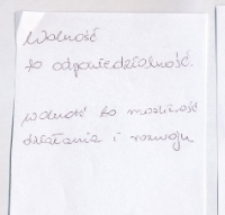 Wolność
to odpowiedzialność.
wolność to możliwość
działania i rozwoju